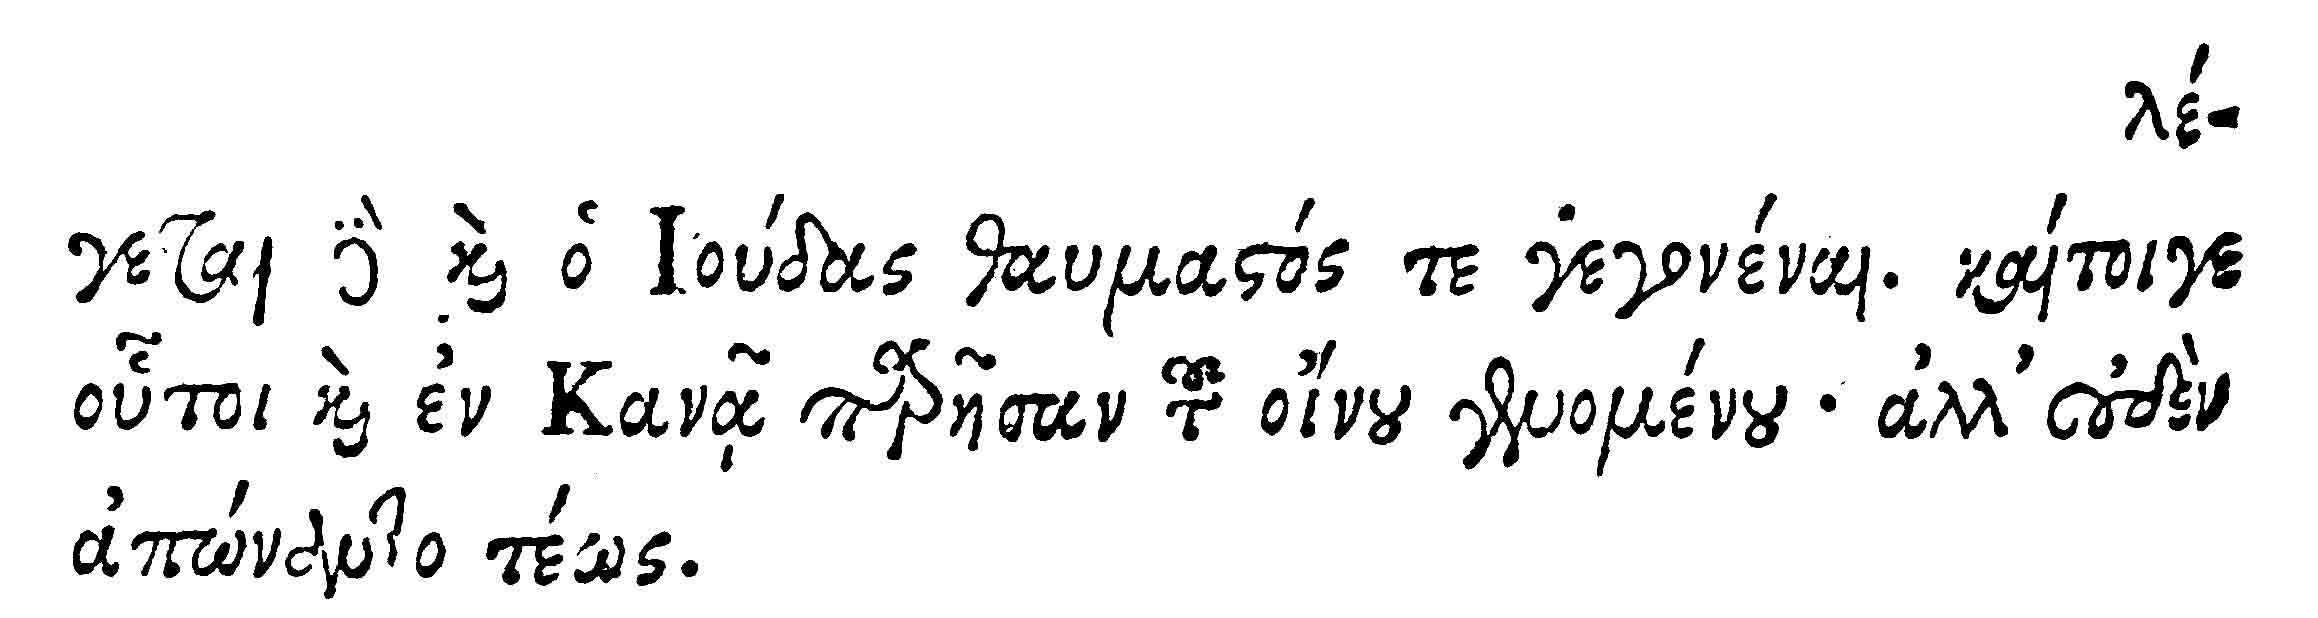 λέ-
γεται γὰρ καὶ ὁ Ιούδας θαυμαστός τε γεγονέναι. καίτοιγε
οὗτοι καὶ ἐν Κανᾷ παρῆσαν τοῦ οἴνου γευομένου· ἀλλ' οὐδὲν
ἀπώναντο τέως.